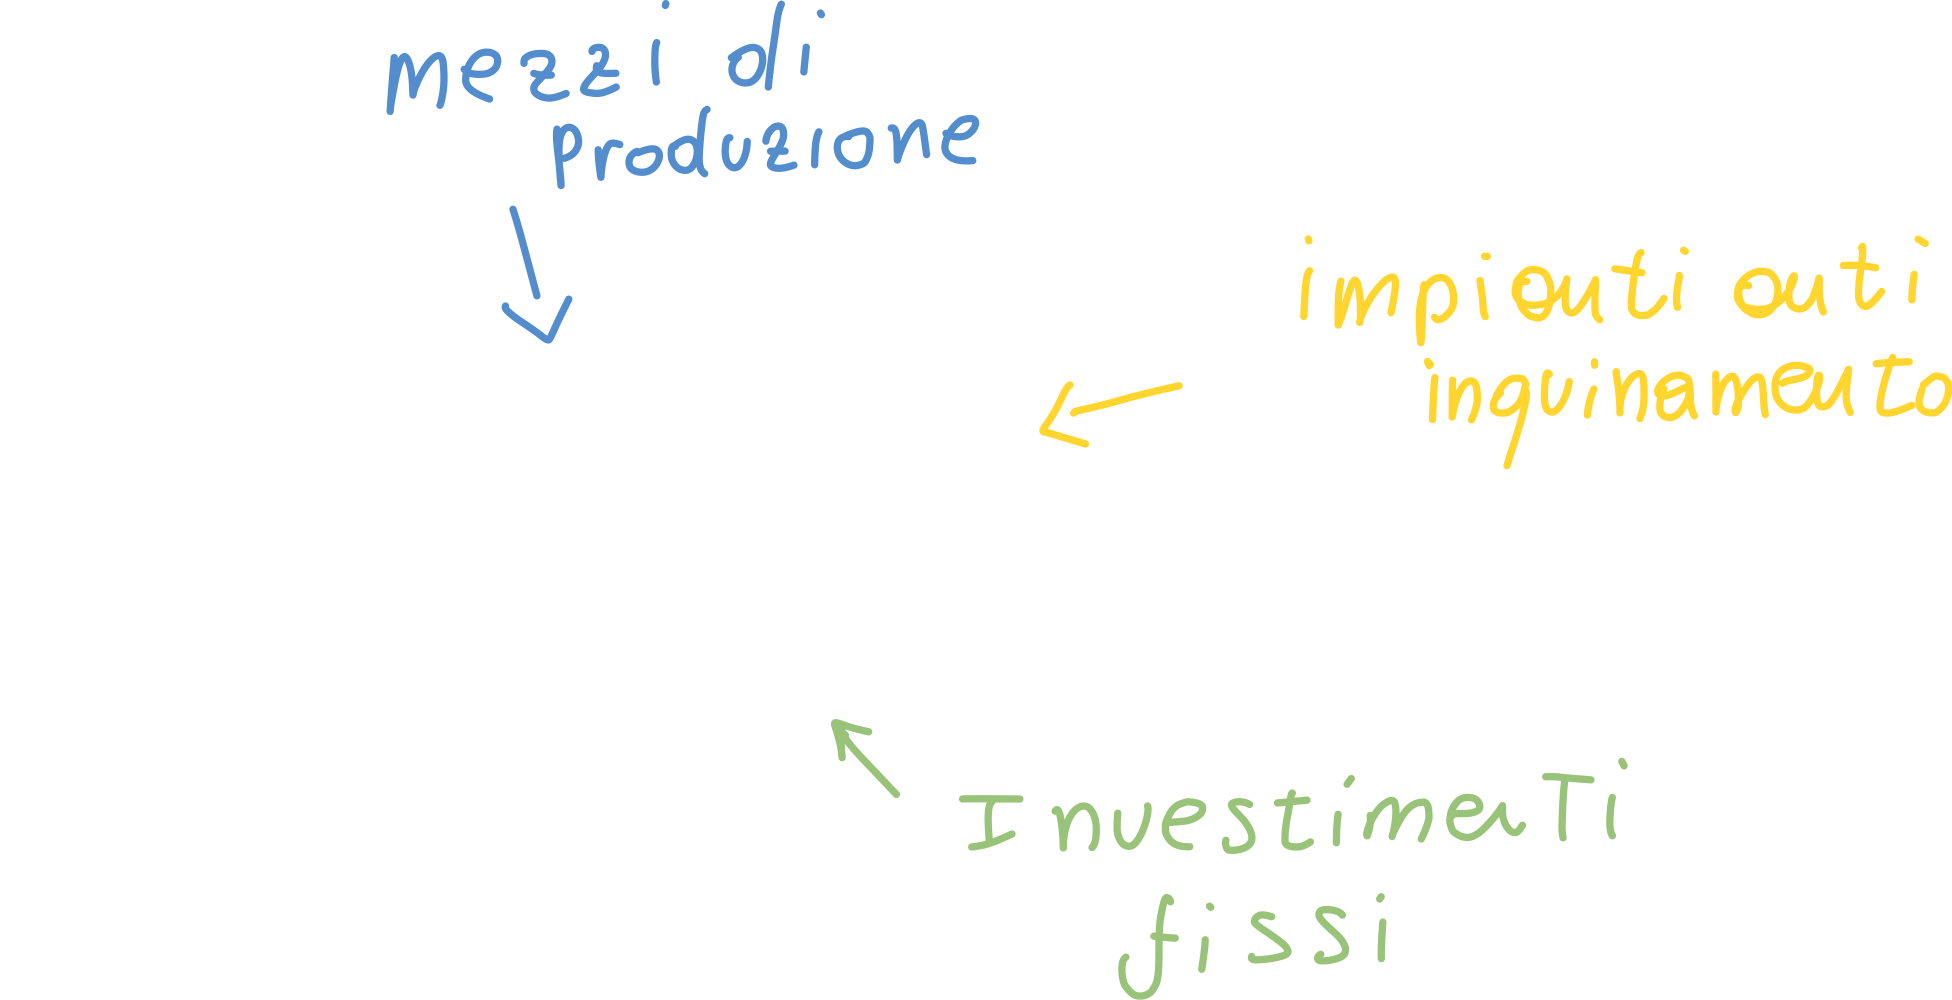 mezzi di
produzione
impianti anti
inquinamento
Investimenti
fissi